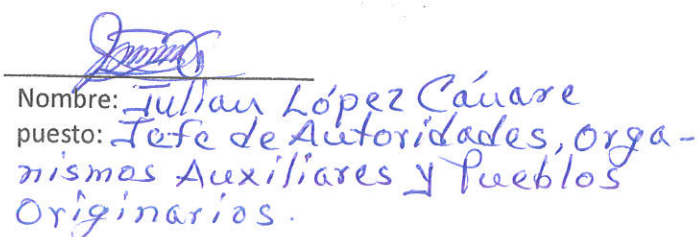 Nombre: Julian López Cánare
puesto: Jefe de Autoridades, Orga-
nismos Auxiliares y Pueblos
Originarios.